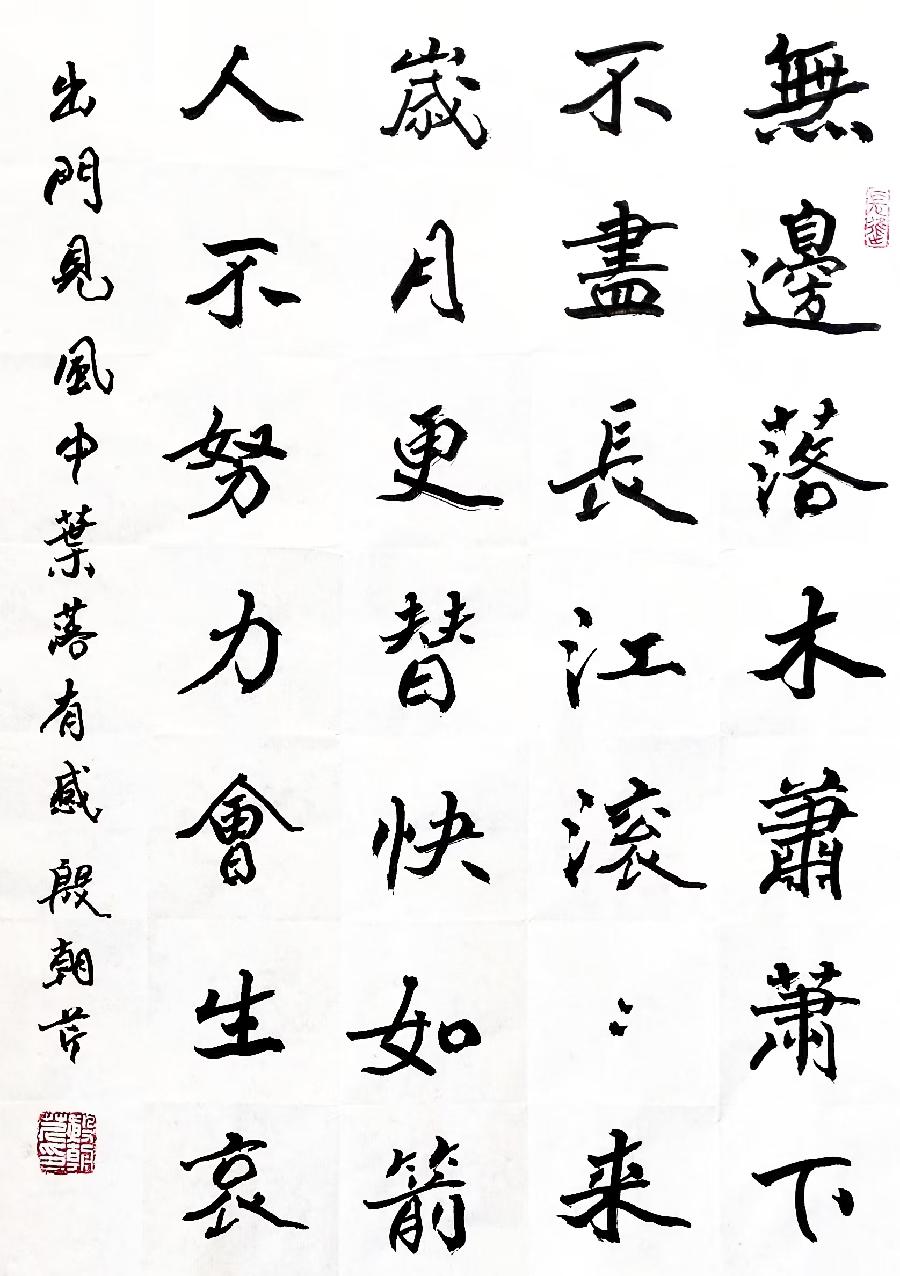 無邊落木蕭蕭下
不盡長江滾〻来
歲月更替快如箭
人不努力會生哀
出門見風中葉落有感殷朝芹